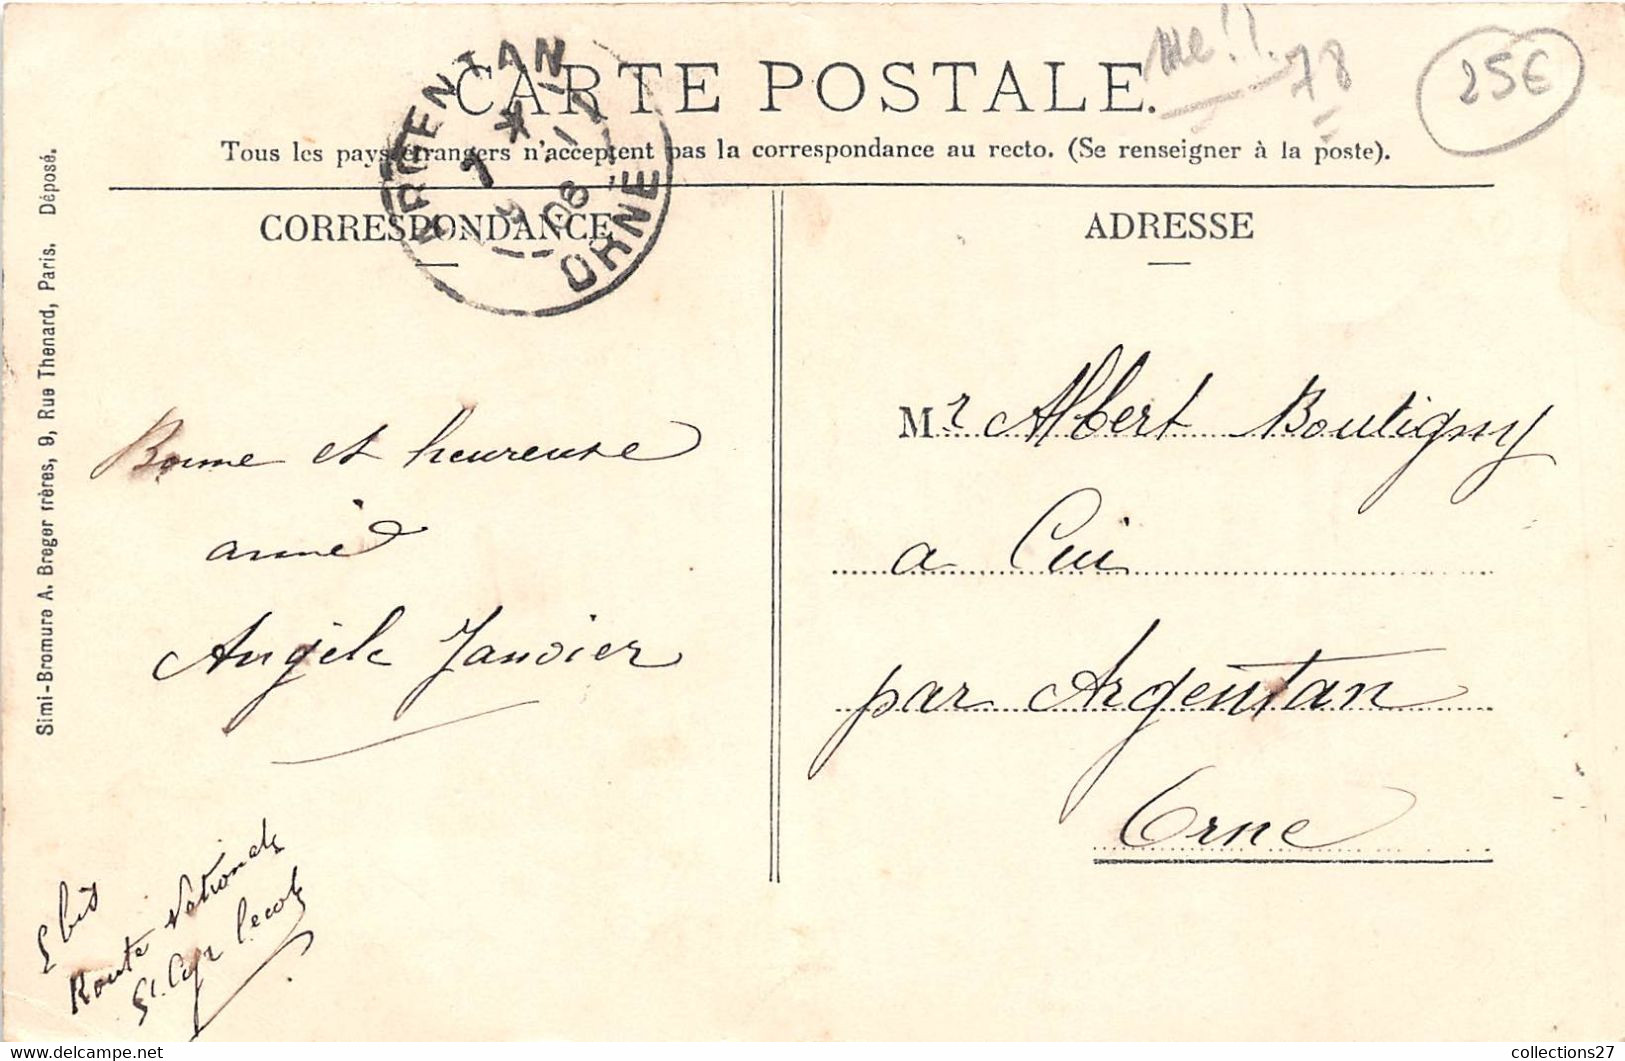 CARTE POSTALE.
Tous les pays étrangers n'acceptent pas la correspondance au recto. (Se renseigner à la poste).
CORRESPONDANCE
ADRESSE
ARGENTAN
ORNE
78
25€
Simi-Bromure A. Breger frères, 9, Rue Thenard, Paris. Déposé.
Bonne et heureuse
anné
Angèle Janvier
bis
Route Nationale
St. Cyr l'ecole
Mr Albert Boutigny
a Cui
par Argentan
Orne
collections27